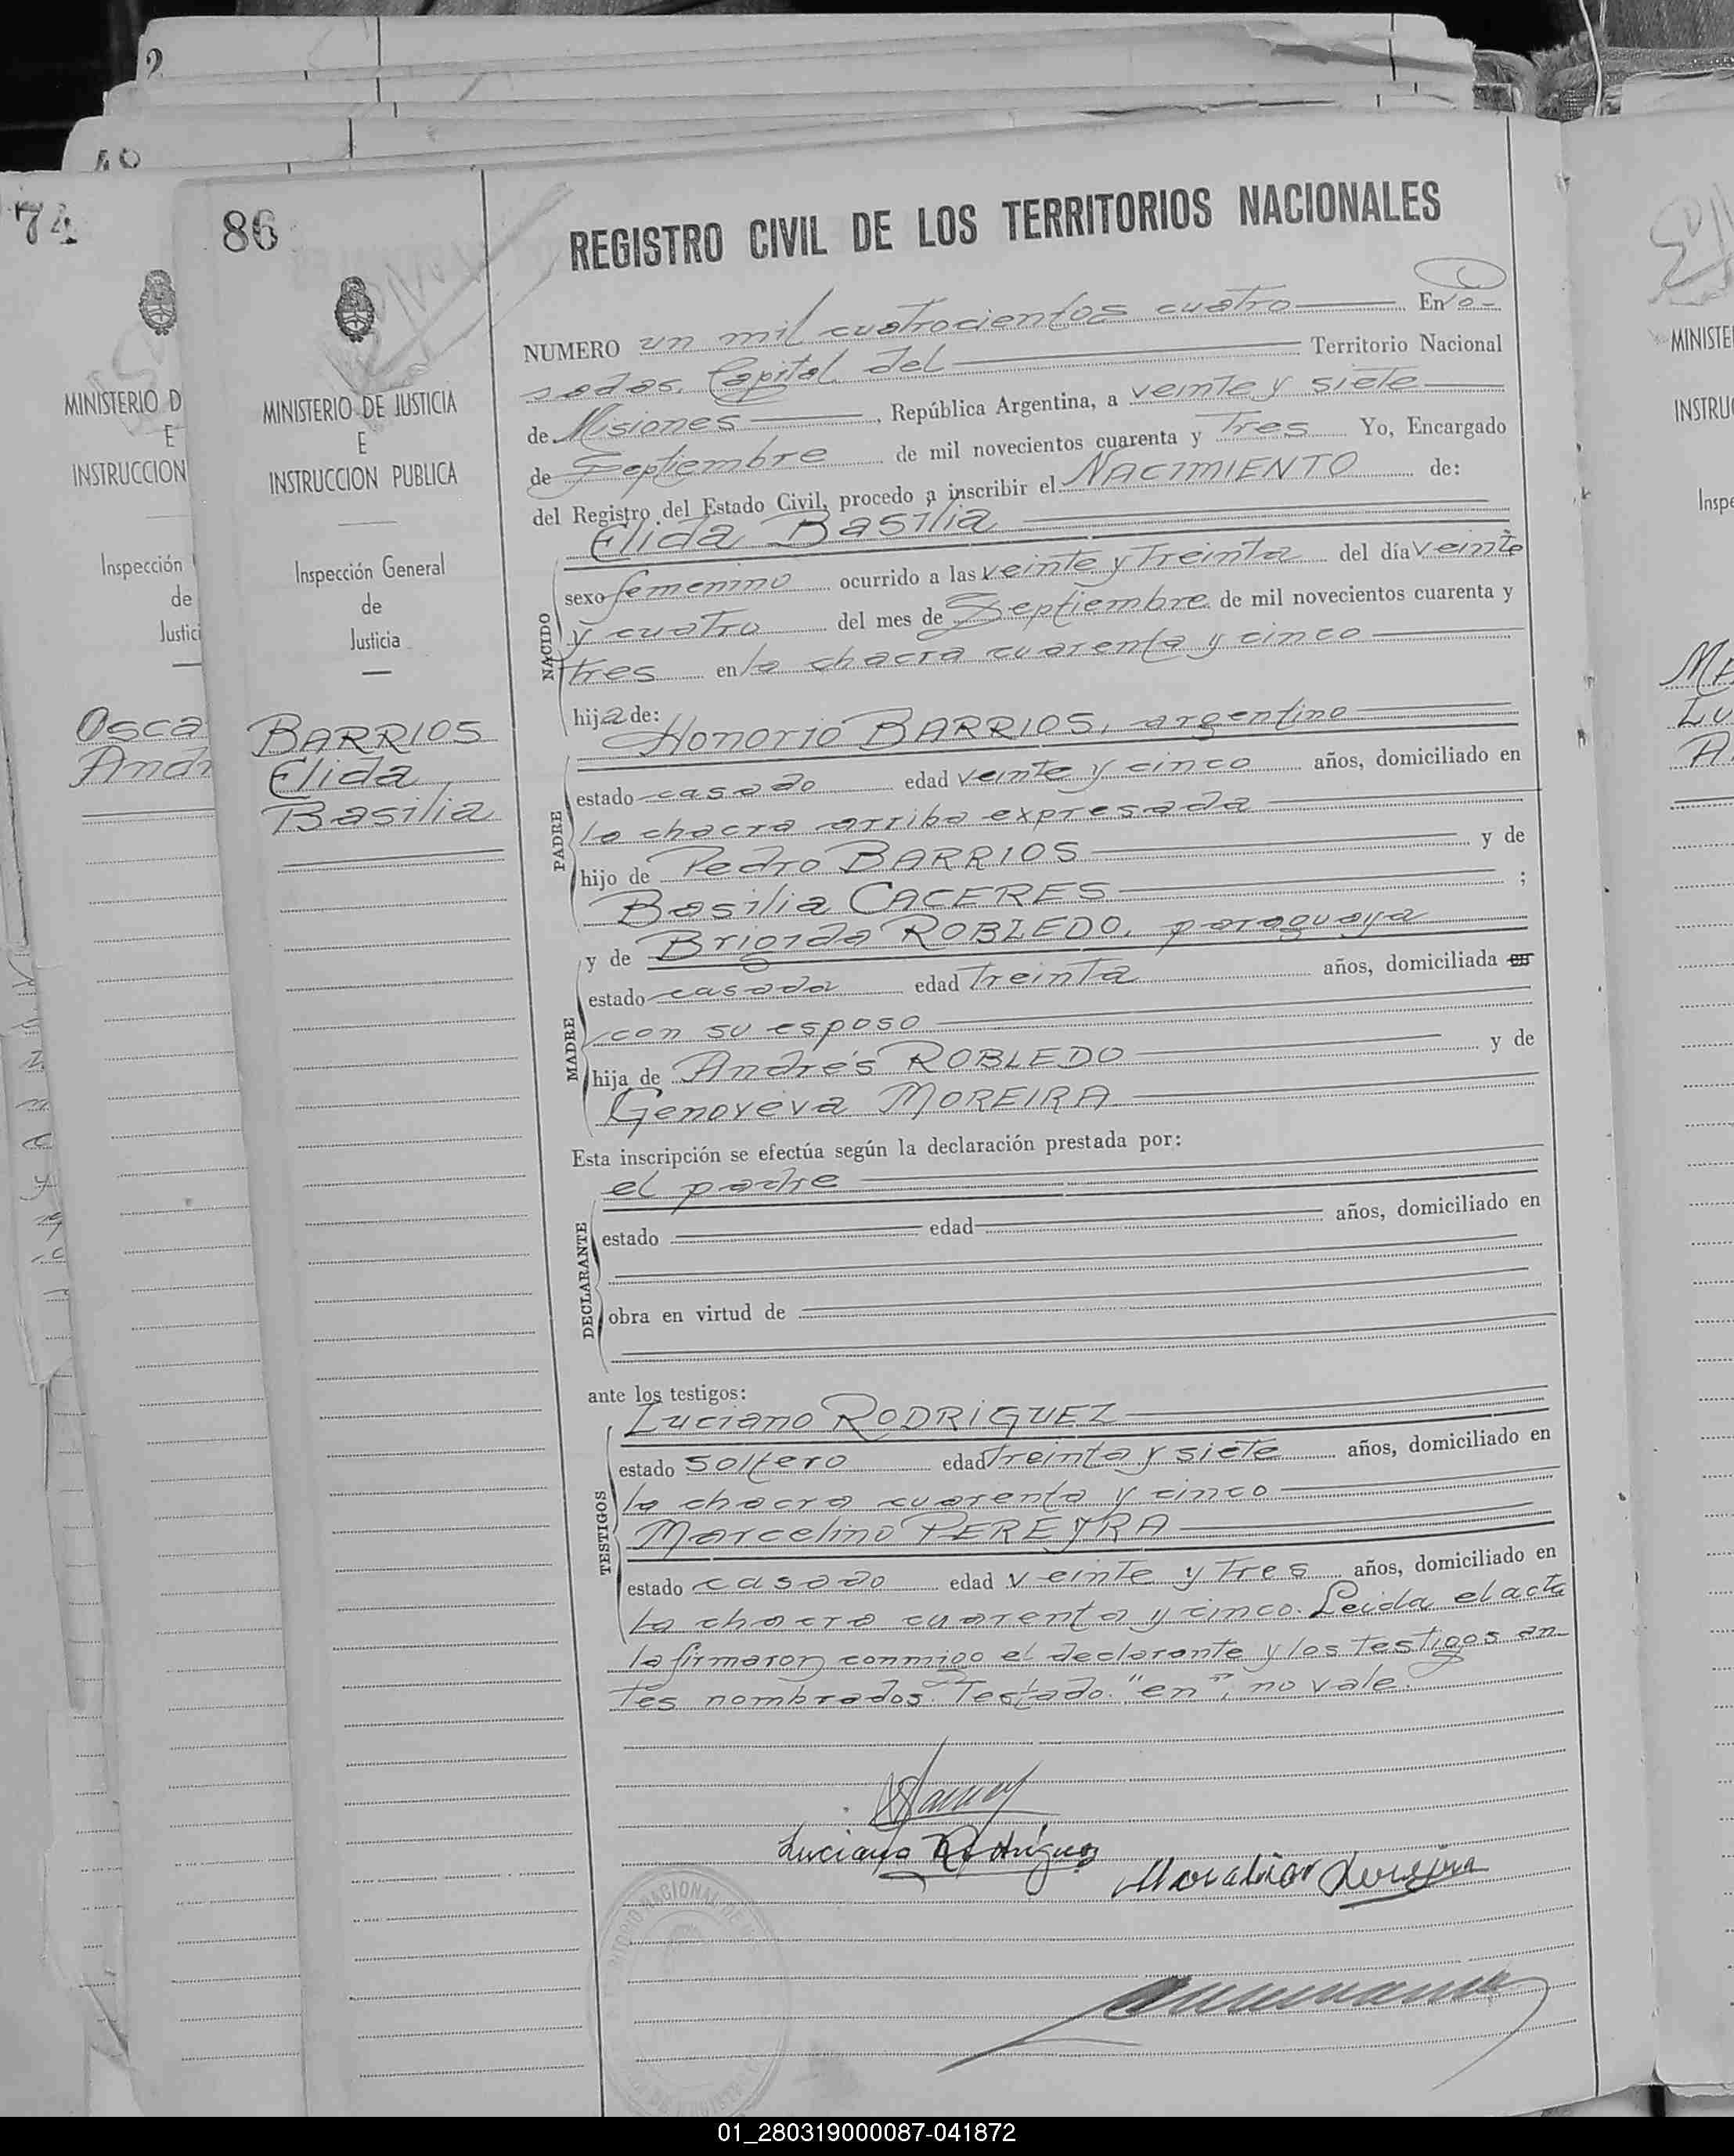 2
48
74
86
REGISTRO CIVIL DE LOS TERRITORIOS NACIONALES
NUMERO un mil cuatrocientos cuatro En Po-
sadas, Capital del Territorio Nacional
de Misiones, República Argentina, a veinte y siete
de Septiembre de mil novecientos cuarenta y Tres Yo, Encargado
del Registro del Estado Civil, procedo a inscribir el NACIMIENTO de:
MINISTERIO DE JUSTICIA
E
INSTRUCCION PUBLICA
Inspección General
de
Justicia
BARRIOS
Elida
Basilia
NACIDO
Elida Basilia
sexo femenino ocurrido a las veinte y Treinta del día veinte
y cuatro del mes de Septiembre de mil novecientos cuarenta y
tres en la chacra cuarenta y cinco
hija de:
PADRE
Honorio BARRIOS, argentino
estado casado edad veinte y cinco años, domiciliado en
la chacra arriba expresada
hijo de Pedro BARRIOS y de
Basilia CACERES ;
MADRE
y de Brigida ROBLEDO, paraguaya
estado casada edad Treinta años, domiciliada en
con su esposo
hija de Andrés ROBLEDO y de
Genoveva MOREIRA
Esta inscripción se efectúa según la declaración prestada por:
DECLARANTE
el padre
estado edad años, domiciliado en
obra en virtud de
ante los testigos:
TESTIGOS
Luciano RODRIGUEZ
estado soltero edad Treinta y siete años, domiciliado en
la chacra cuarenta y cinco
Marcelino PEREYRA
estado casado edad veinte y Tres años, domiciliado en
la chacra cuarenta y cinco. Leida el acta
la firmaron conmigo el declarante y los testigos an-
tes nombrados. Testado: "en", no vale.
Luciano Rodriguez
MINISTERIO D
E
INSTRUCCION
Inspección
de
Justici
Osca
Andr
MINISTE
INSTRU
Inspe
01_280319000087-041872